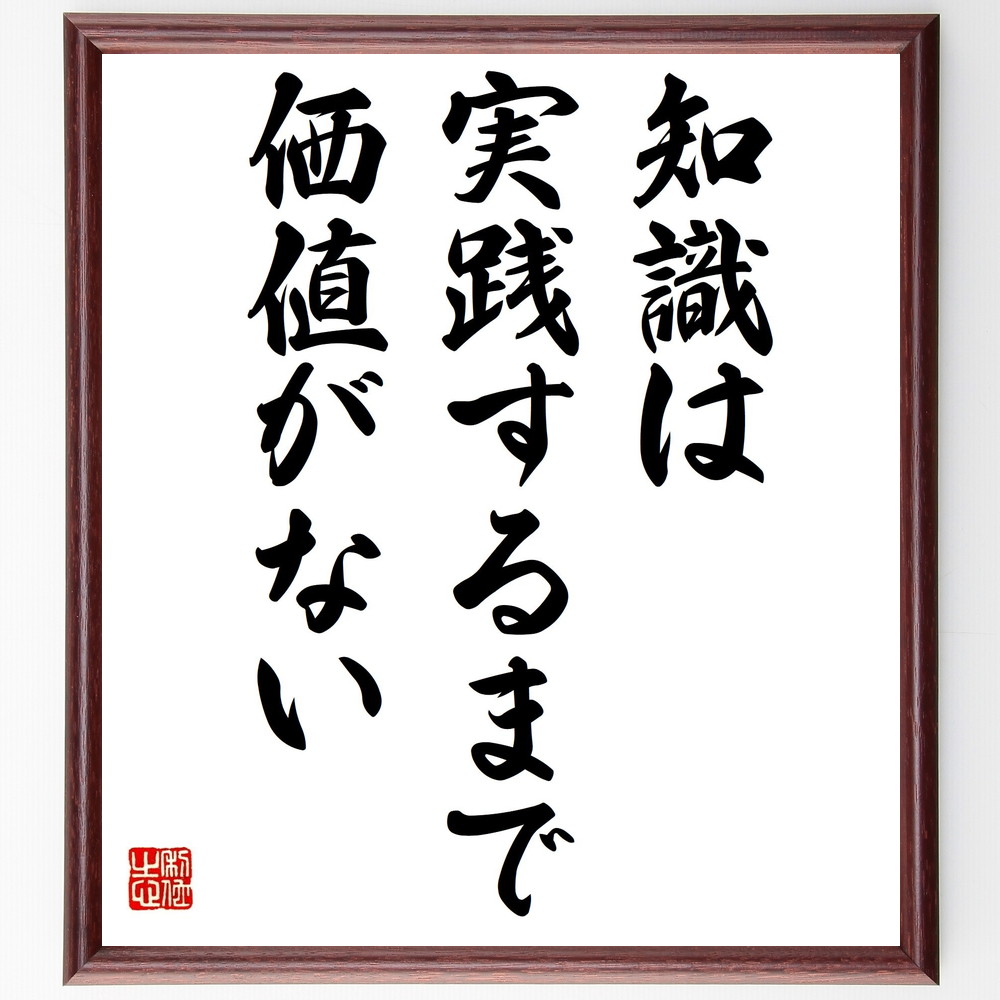 知識は
実践するまで
価値がない